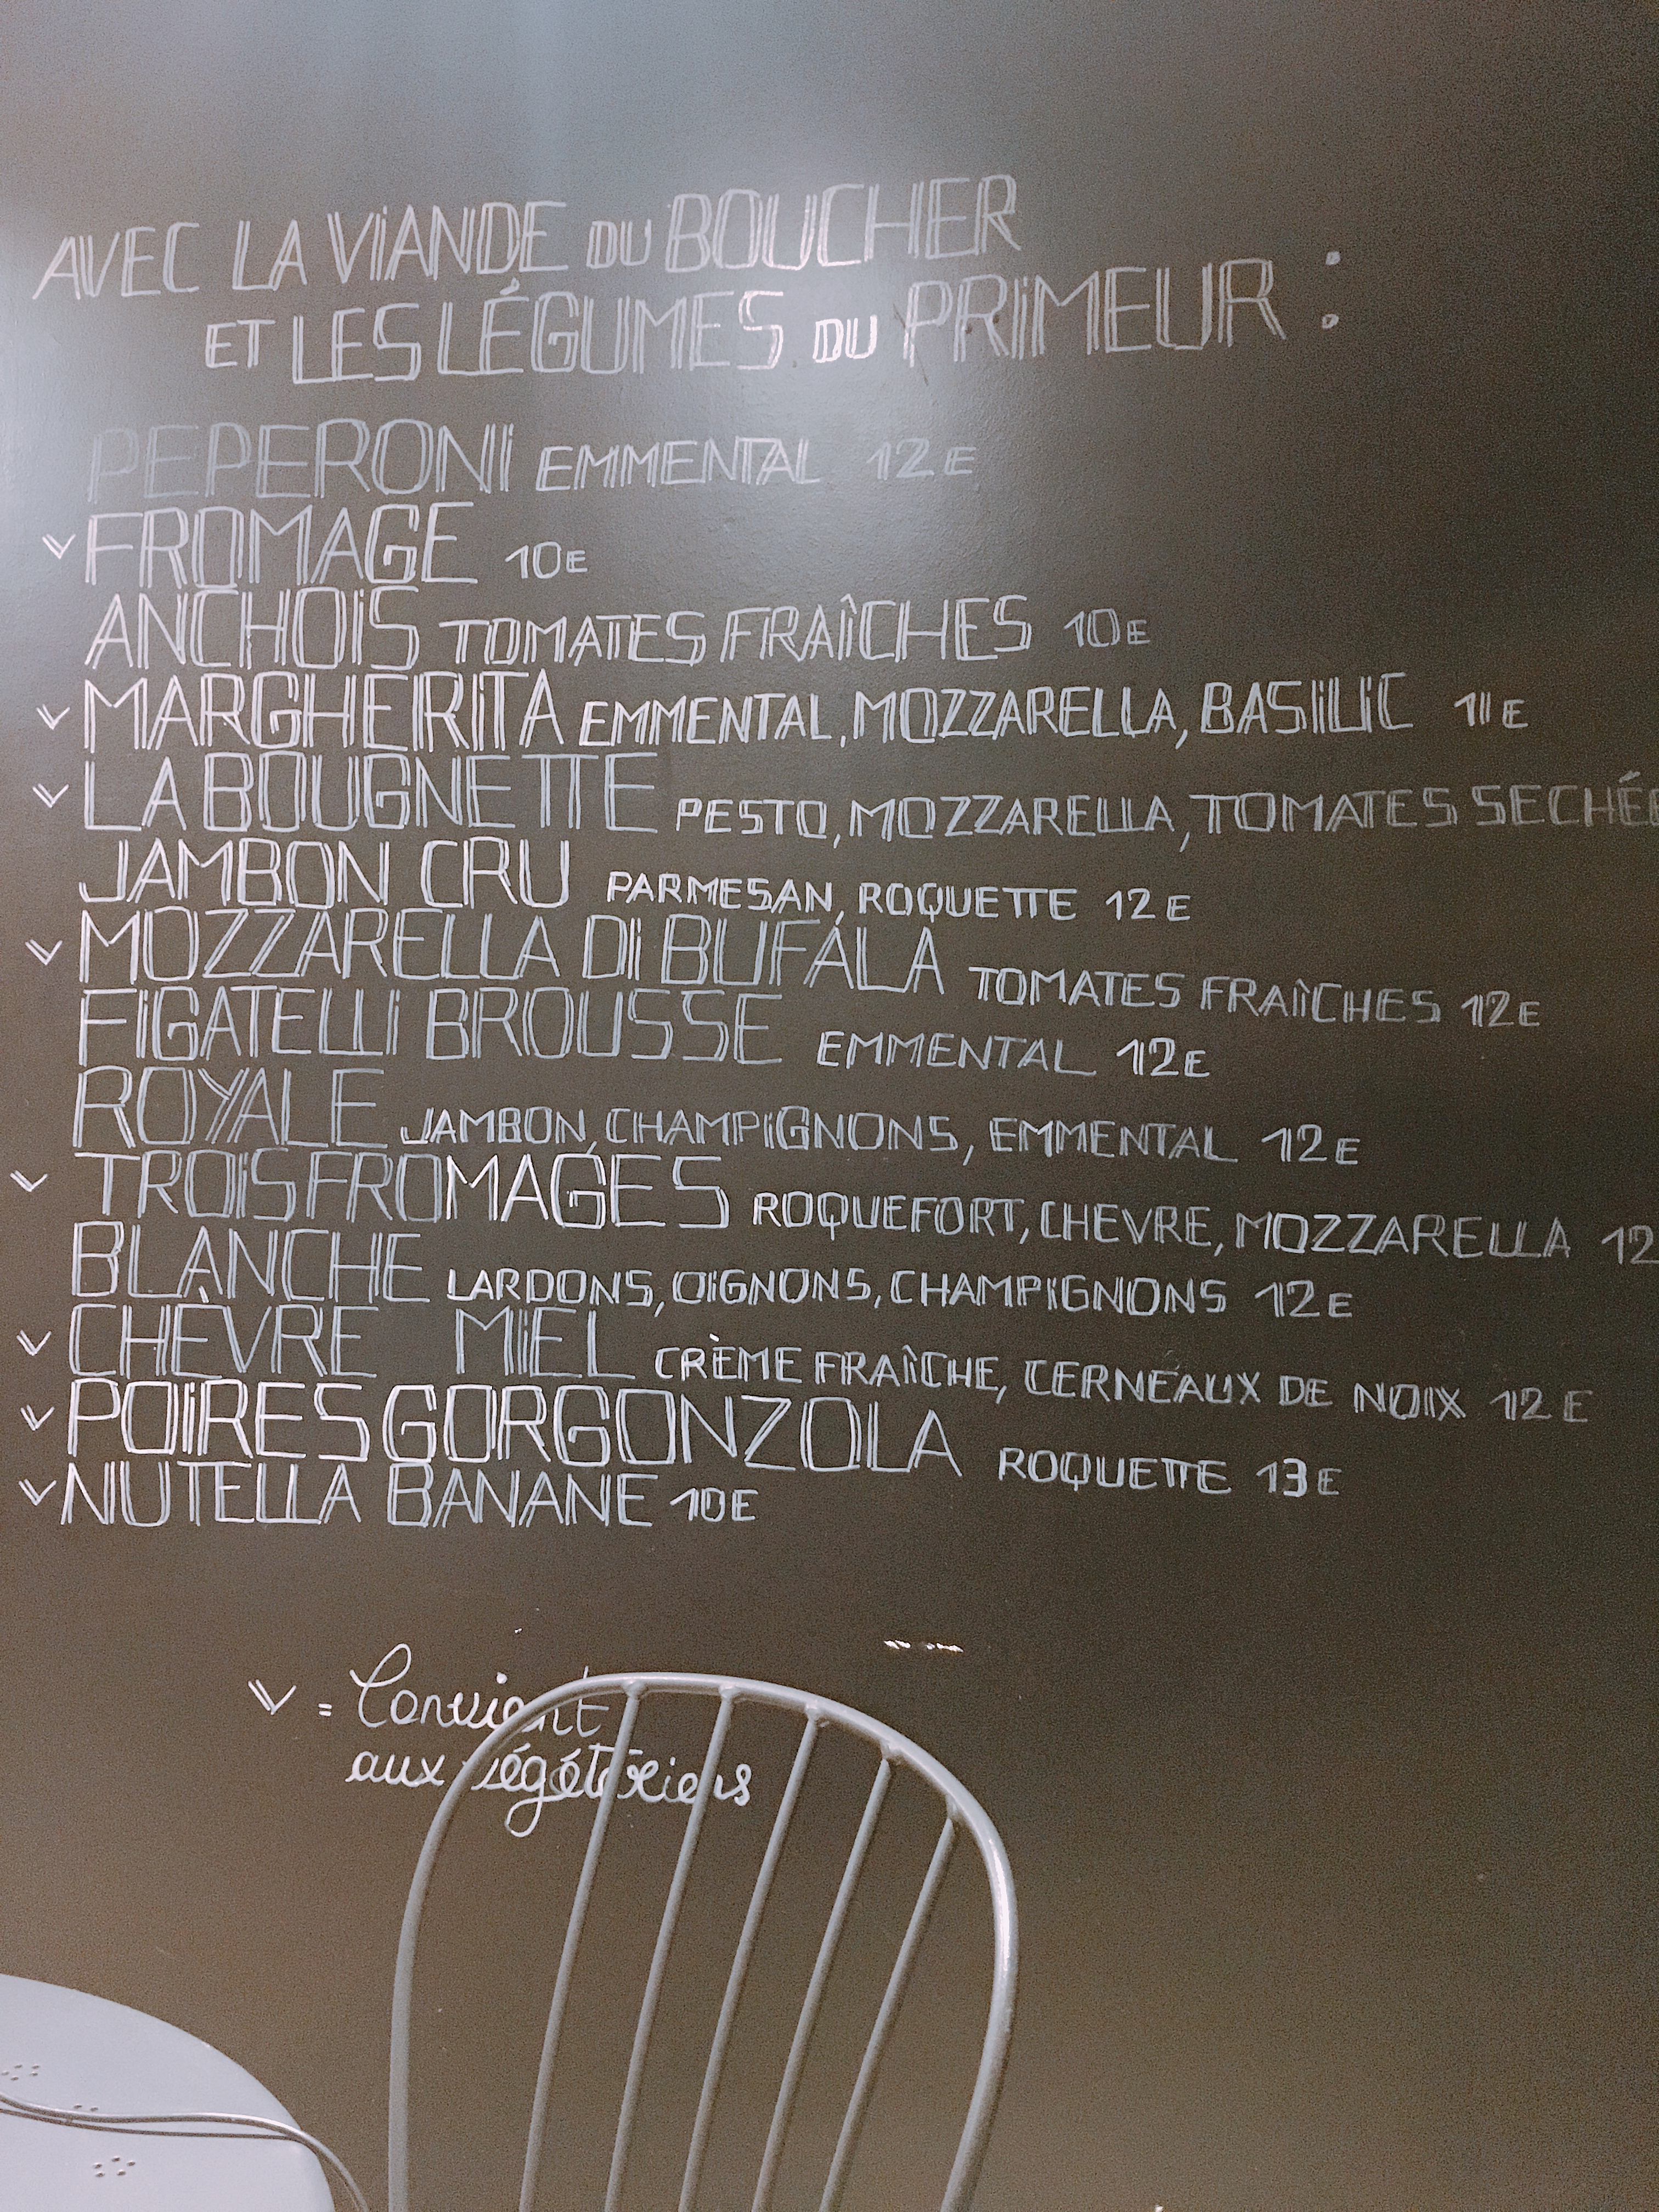 AVEC LA VIANDE DU BOUCHER
ET LES LÉGUMES DU PRIMEUR :
PEPERONI EMMENTAL 12E
V FROMAGE 10E
ANCHOIS TOMATES FRAÎCHES 10E
V MARGHERITA EMMENTAL, MOZZARELLA, BASILIC 11E
V LA BOUGNETTE PESTO, MOZZARELLA, TOMATES SECHÉE
JAMBON CRU PARMESAN, ROQUETTE 12E
V MOZZARELLA DI BUFALA TOMATES FRAÎCHES 12E
FIGATELLI BROUSSE EMMENTAL 12E
ROYALE JAMBON, CHAMPIGNONS, EMMENTAL 12E
V TROIS FROMAGES ROQUEFORT, CHEVRE, MOZZARELLA 12
BLANCHE LARDONS, OIGNONS, CHAMPIGNONS 12E
V CHÈVRE MIEL CRÈME FRAÎCHE, CERNEAUX DE NOIX 12E
V POIRES GORGONZOLA ROQUETTE 13E
V NUTELLA BANANE 10E
V = Convient
aux végétariens